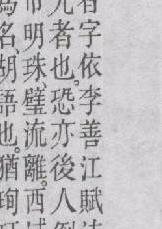 字依李善江賦
者也。恐亦後人
市明珠、璧流離。西
爲名、胡語也。猶珣